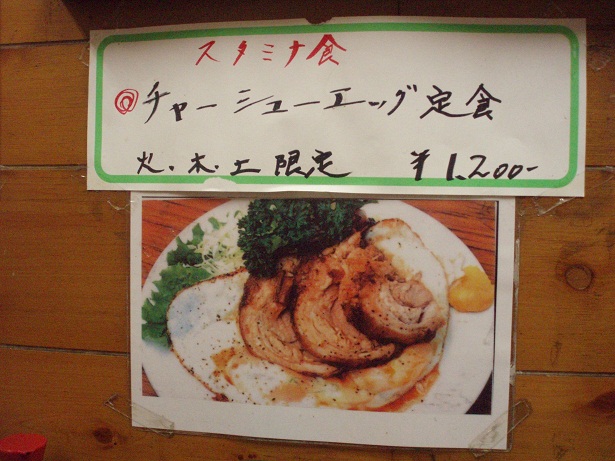 スタミナ食
◎チャーシューエッグ定食
火.木.土限定 ¥1.200-